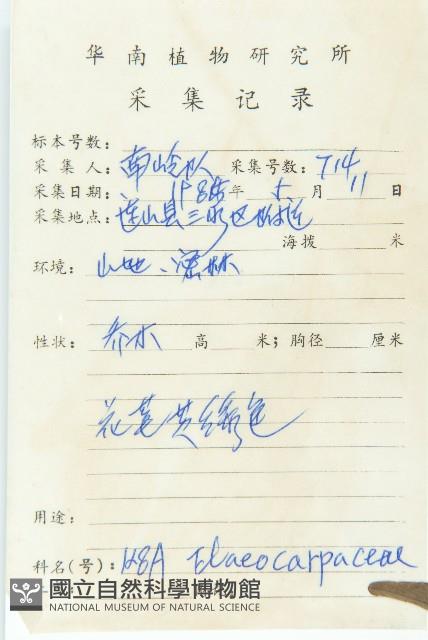 华南植物研究所
采集记录
标本号数:
采集人: 南岭队 采集号数: 714
采集日期: 1985年 5月 11日
采集地点: 连山县三水区附近
海拨 米
环境: 山地、密林
性状: 乔木 高 米; 胸径 厘米
花萼黄绿色
用途:
科名(号): 128A Elaeocarpaceae
國立自然科學博物館
NATIONAL MUSEUM OF NATURAL SCIENCE